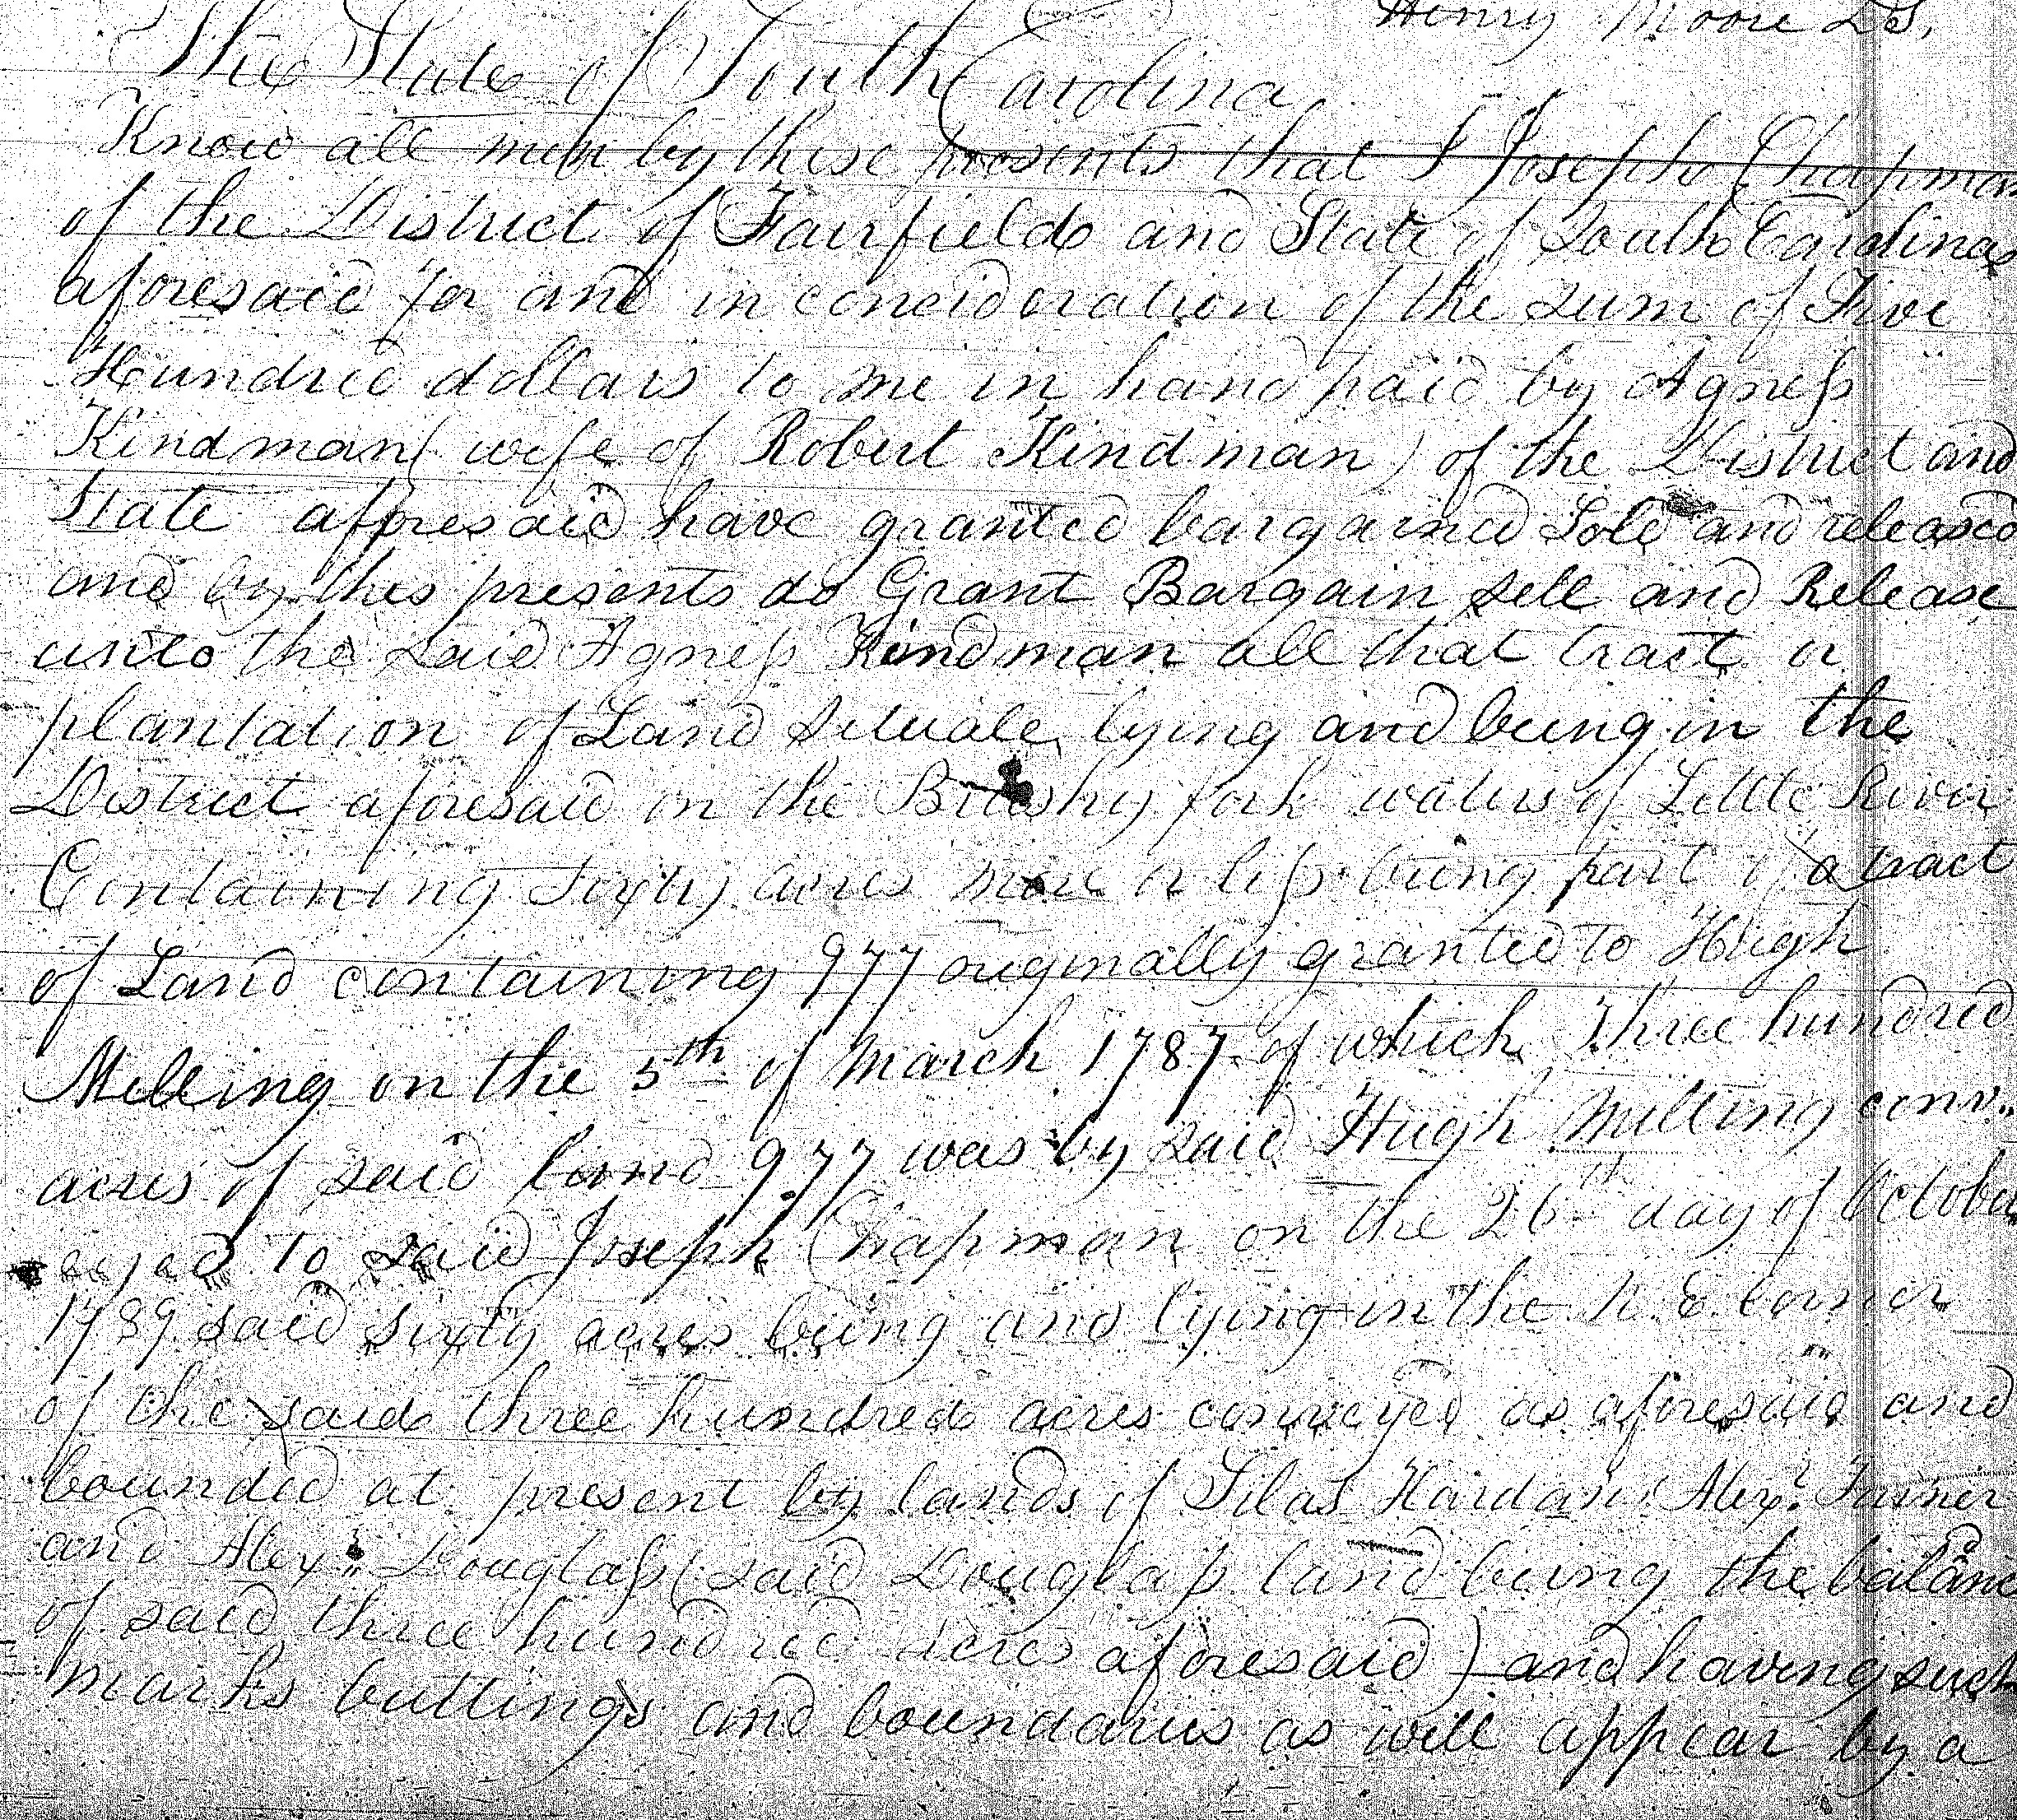 Henry Moore LS,
The State of South Carolina
Know all men by these presents that I Joseph Chapman
of the District of Fairfield and State of South Carolina
aforesaid for and in concideration of the sum of Five
Hundred dollars to me in hand paid by Agness
Kindman (wife of Robert Kindman) of the District and
State aforesaid have granted bargained Sold and released
and by this presents do Grant Bargain sell and Release
unto the said Agness Kindman all that tract or
plantation of Land situate lying and being in the
District aforesaid on the Brushy fork waters of Little River
Containing Sixty acres more or less being part of a tract
of Land containing 977 originally granted to Hugh
Milling on the 5th of March 1787 of which Three hundred
acres of said land 977 was by said Hugh Milling conv..
eyed to said Joseph Chapman on the 26th day of October
1789 said sixty acres being and lying in the N. E. Corner
of the said three hundred acres conveyed as aforesaid and
bounded at present by lands of Silas Hardan Alexr. Turner
and Alexr. Douglass (said Douglass land being the balance
of said three hundred acres aforesaid) and having such
marks buttings and boundaries as will appear by a